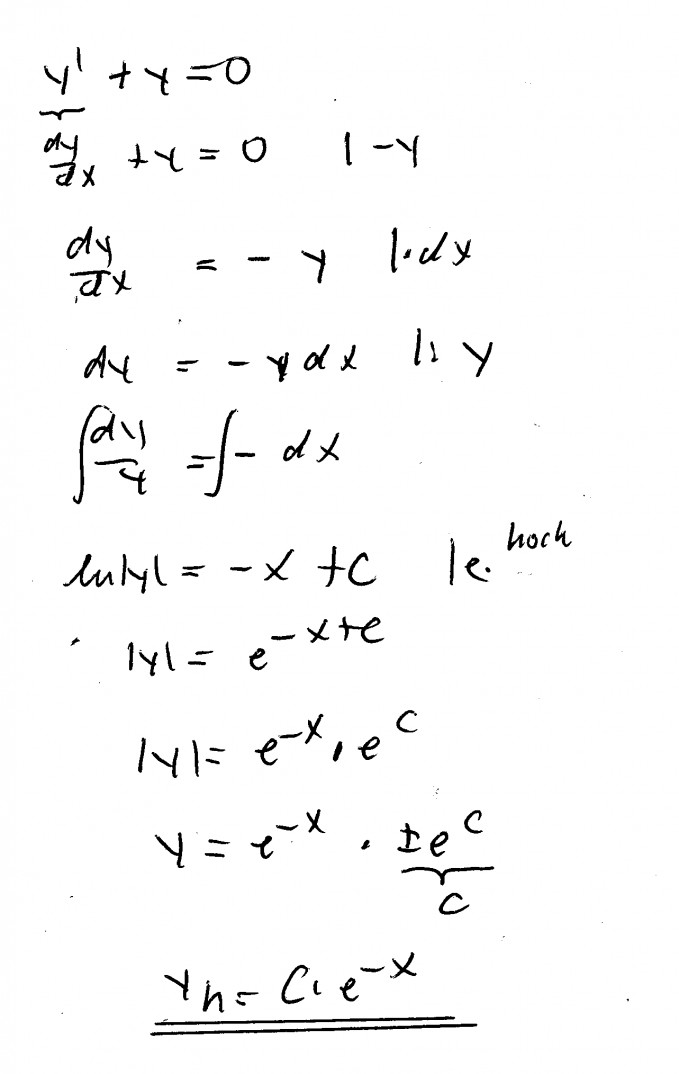 y' + y = 0
dy/dx + y = 0 | -y
dy/dx = - y |·dx
dy = - y dx |: y
∫ dy/y = ∫ - dx
ln|y| = -x + C | e hoch
|y| = e^(-x+c)
|y| = e^(-x) · e^C
y = e^(-x) · ± e^C
C
y_h = C₁ e^(-x)